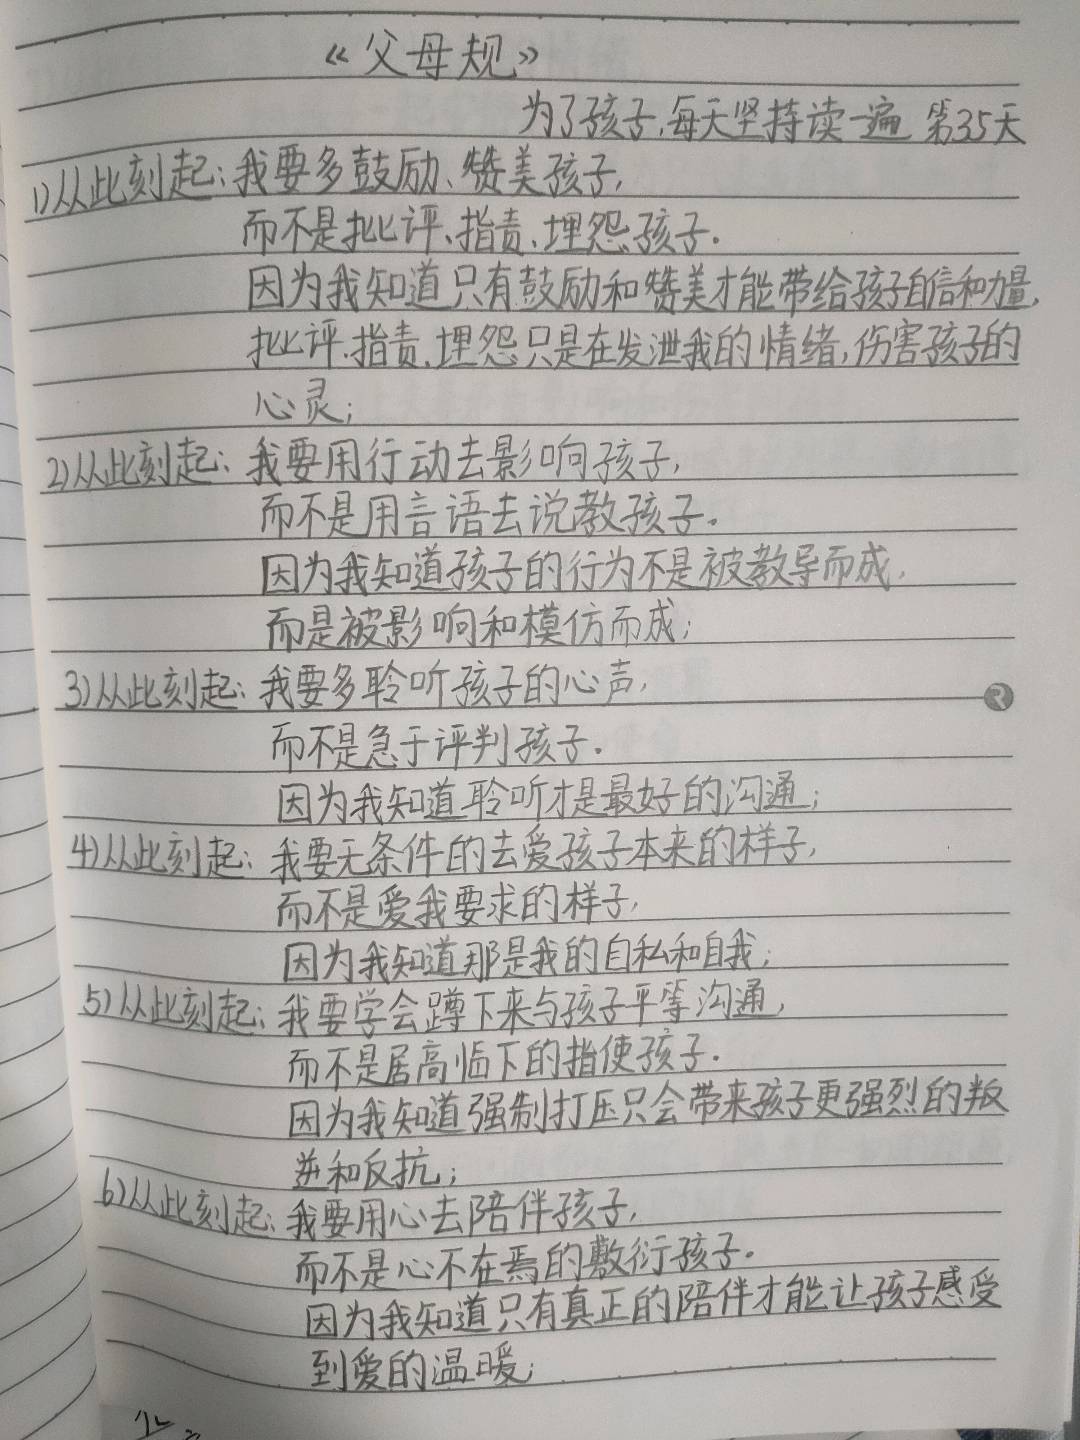 《父母规》
为了孩子,每天坚持读一遍 第35天
1)从此刻起:我要多鼓励、赞美孩子,
而不是批评、指责、埋怨孩子.
因为我知道只有鼓励和赞美才能带给孩子自信和力量,
批评.指责.埋怨只是在发泄我的情绪,伤害孩子的
心灵;
2)从此刻起:我要用行动去影响孩子,
而不是用言语去说教孩子.
因为我知道孩子的行为不是被教导而成,
而是被影响和模仿而成;
3)从此刻起:我要多聆听孩子的心声,
而不是急于评判孩子.
因为我知道聆听才是最好的沟通;
4)从此刻起:我要无条件的去爱孩子本来的样子,
而不是爱我要求的样子,
因为我知道那是我的自私和自我;
5)从此刻起:我要学会蹲下来与孩子平等沟通,
而不是居高临下的指使孩子.
因为我知道强制打压只会带来孩子更强烈的叛
逆和反抗;
6)从此刻起:我要用心去陪伴孩子,
而不是心不在焉的敷衍孩子.
因为我知道只有真正的陪伴才能让孩子感受
到爱的温暖;